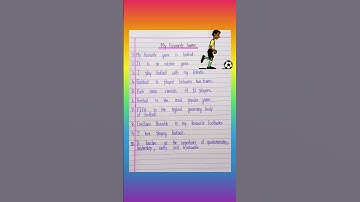 My Favourite Game
1. My favourite game is football.
2. It is an outdoor game.
3. I play football with my friends.
4. Football is played between two teams.
5. Each team consists of 11 players.
6. Football is the most popular game.
7. FIFA is the highest governing body
of football.
8. Cristiano Ronaldo is my favourite footballer.
9. I love playing football.
10. It teaches us the importance of sportsmanship,
leadership, unity and